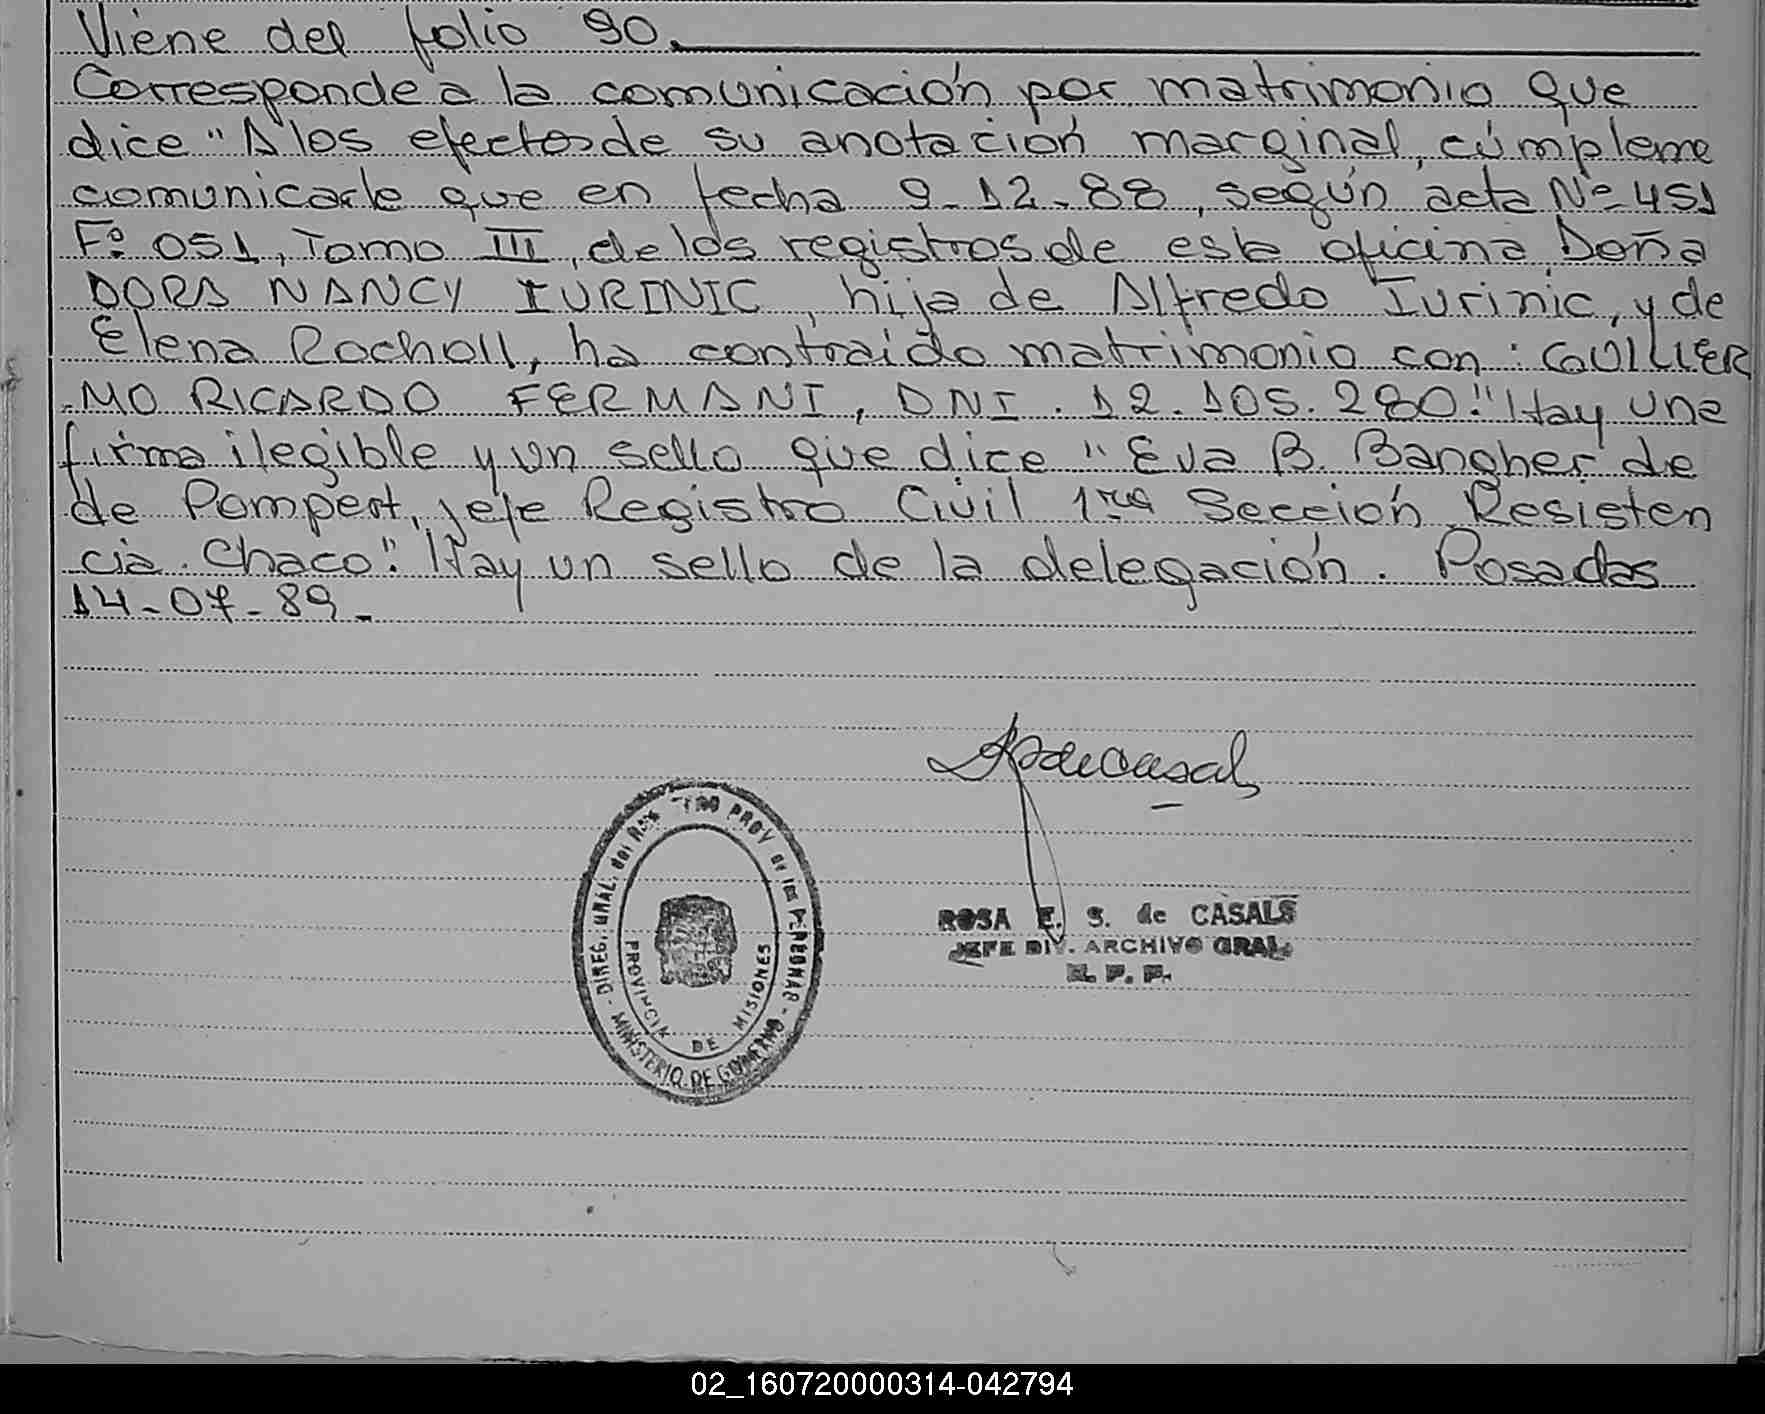 Viene del folio 90.
Corresponde a la comunicación por matrimonio que
dice "A los efectos de su anotación marginal, cúmpleme
comunicarle que en fecha 9-12-88, según acta Nº 451
Fº 051, Tomo III, de los registros de esta oficina, Doña
DORA NANCY IURINIC, hija de Alfredo Iurinic, y de
Elena Rocholl, ha contraido matrimonio con: GUILLER
-MO RICARDO FERMANI, DNI. 12.105.280." Hay una
firma ilegible y un sello que dice "Eva B. Bangher de
de Pompert, jefe Registro Civil 1ra Sección Resisten
cia. Chaco". Hay un sello de la delegación. Posadas
14-07-89-
DIREC. GRAL. del REG TRO PROV de las PERSONAS -
MINISTERIO DE GOBIERNO -
PROVINCIA DE MISIONES
ROSA E. S. de CASALS
JEFE DIV. ARCHIVO GRAL.
R. P. P.
02_160720000314-042794